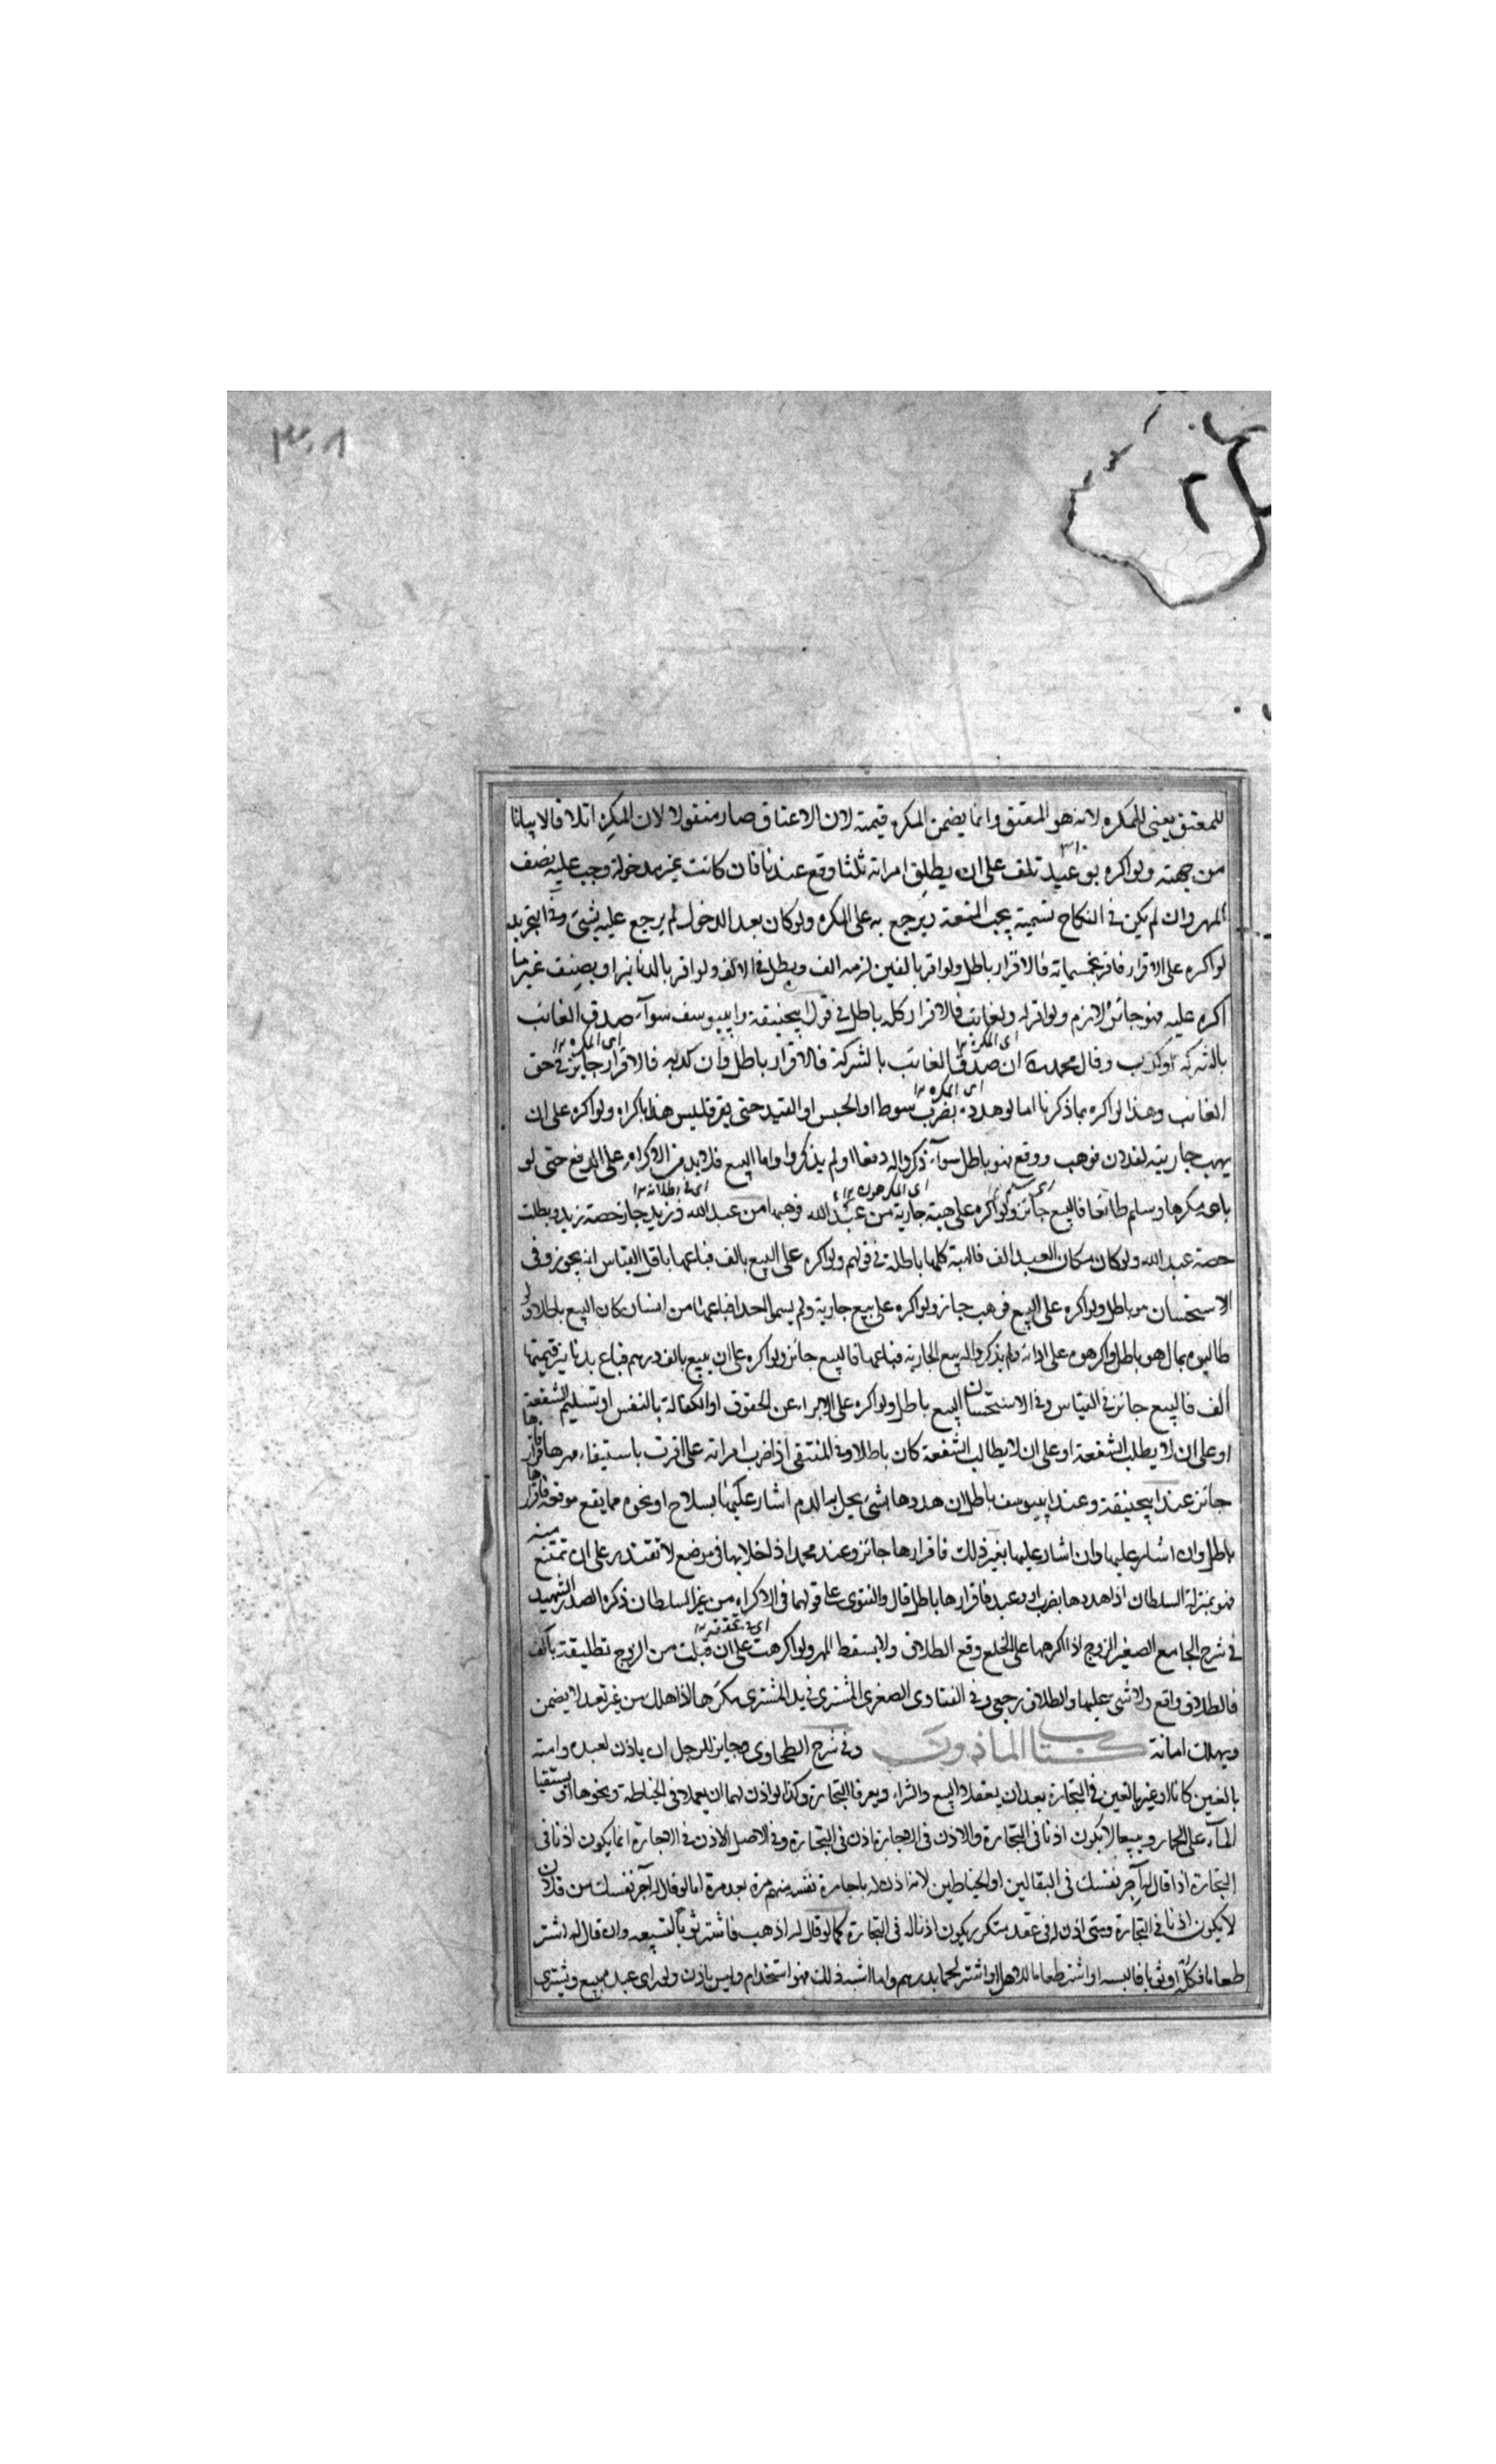 ٣٠٨
للمعتق يعنى للمكره لانه هو المعتق وانما يضمن المكره قيمته لان الاعتاق صار منقولا لان المكره اتلافا لا بيانا
من جهته ولو اكره بوعيد تلف على ان يطلق امراته ثلثا وقع عندنا فان كانت غير مدخولة وجب عليه نصف
المهر وان لم يكن فى النكاح تسمية يجب المتعة ويرجع به على المكره ولو كان بعد الدخول لم يرجع عليه بشئ وفى التجريد
لو اكره على الاقرار فاقر بخمسماية فالاقرار باطل ولو اقر بالفين لزمه الف ويبطل فى الالف ولو اقر بالدنانير او بصنف غير ما
اكره عليه فهو جائز لازم ولو اقر له ولغائب فالاقرار كله باطل فى قول ابيحنيفة وابييوسف سوآء صدق الغائب
بالشركة او كذب وقال محمد ان صدق الغائب بالشركة فالاقرار باطل وان كذبه فالاقرار جائز فى حق
الغائب وهذا لو اكره بما ذكرنا اما لو هدده بضرب سوط او الحبس او القيد حتى يقر فليس هذا باكراه ولو اكره على ان
يهب جاريته لفلان فوهب ودفع فهو باطل سوآء ذكروا له دفعا او لم يذكروا واما البيع فلا بد من الاكراه على الدفع حتى لو
باعه مكرها وسلم طائعا فالبيع جائز ولو اكره على هبة جارية من عبد الله فوهبها من عبد الله وزيد جاز حصة زيد وبطلت
حصة عبد الله ولو كان مكان العبد الف فالهبة كلها باطلة فى قولهم ولو اكره على البيع بالف فباعها باقل القياس انه يجوز وفى
الاستحسان هو باطل ولو اكره على البيع فوهب جاز ولو اكره على بيع جارية ولم يسم احدا فباعها من انسان كان البيع باطلا ولو
طالبوه بمال هو باطل واكرهوه على ادائه ولم يذكروا له بيع الجارية فباعها فالبيع جائز ولو اكره على ان يبيع بالف درهم فباع بدنانير قيمتها
الف فالبيع جائز فى القياس وفى الاستحسان البيع باطل ولو اكره على الابراء عن الحقوق او الكفالة بالنفس او تسليم الشفعة
او على ان لا يطلب الشفعة او على ان لا يطالب الشفعة كان باطلا وفى المنتقى اذا ضرب امراته على اقرت باستيفاء مهرها فاقرارها
جائز عند ابيحنيفة وعند ابييوسف باطل ان هددها بشئ يحل به الدم اشار عليها بسلاح او نحوه مما يقع موقعه فاقرارها
باطل وان اشار عليها وان اشار عليها بغير ذلك فاقرارها جائز وعند محمد اذا خلا بها فى موضع لا تقتدر على ان تمتنع منه
فهو بمنزلة السلطان اذا هددها بضرب او وعيد فاقرارها باطل قال والفتوى على قولهما فى الاكراه من غير السلطان ذكره الصدر الشهيد
فى شرح الجامع الصغير الزوج اذا اكرهها على الخلع وقع الطلاق ولا يسقط المهر ولو اكرهت على ان قبلت من الزوج تطليقة بالف
فالطلاق واقع ولا شئ عليها والطلاق رجعى وفى الفتاوى الصغرى المشترى فى يد المشترى مكرها اذا هلك من غير تعد لا يضمن
ويهلك امانة كتاب الماذون وفى شرح الطحاوى وجايز للرجل ان ياذن لعبده وامته
بالغين كانا او غير بالغين فى التجارة بعد ان يعقلا البيع والشراء ويعرفا التجارة وكذا لو اذن لهما ان يعملا فى الخياطة ونحوها او يستقيا
المآء على الحمار ويبيعا لا يكون اذنا فى التجارة والاذن فى الاجارة اذن فى التجارة وفى الاصل الاذن فى الاجارة انما يكون اذنا فى
التجارة اذا قال له آجر نفسك فى البقالين او الخياطين لانه اذن له باجارة نفسه منهم مرة بعد مرة اما لو قال له آجر نفسك من فلان
لا يكون اذنا فى التجارة ومتى اذن له فى عقد متكرر يكون اذنا له فى التجارة كما لو قال له اذهب فاشتر ثوبا لتبيعه وان قال له اشتر
طعاما فكله او ثوبا فالبسه او اشتر طعاما لاهل او اشتر لحما بدرهم وما اشبه ذلك فهو استخدام وليس باذن ولو راى عبده يبيع ويشترى